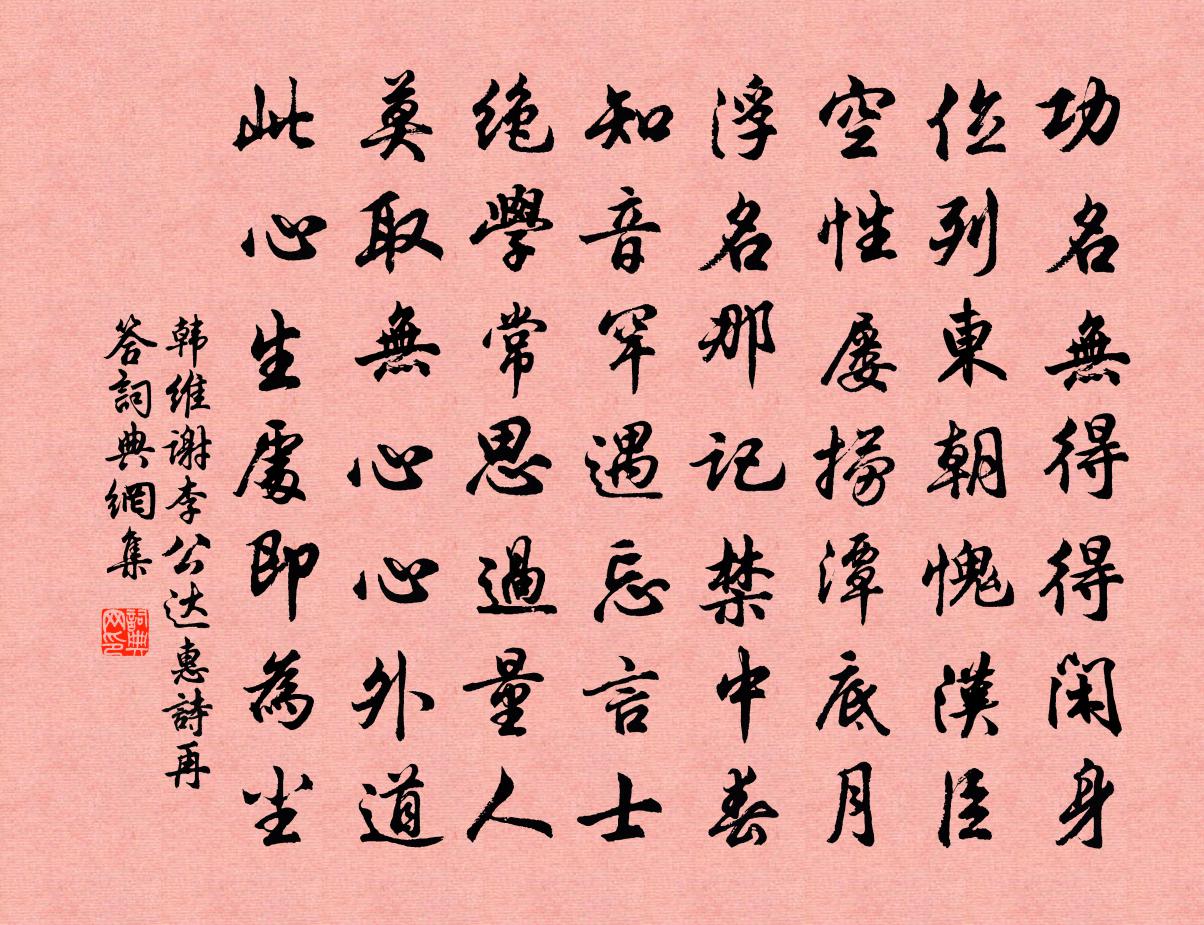 功名無得得閑身
位列東朝愧漢臣
空性屢撈潭底月
浮名那記禁中春
知音罕遇忘言士
絶學常思過量人
莫取無心心外道
此心生處即為塵
韩維謝李公达惠詩再
答詞典網集
詞典網印